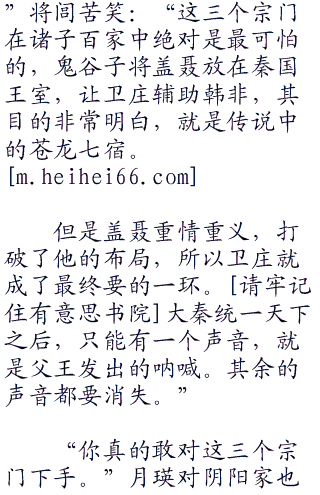 ”将闾苦笑：“这三个宗门
在诸子百家中绝对是最可怕
的，鬼谷子将盖聂放在秦国
王室，让卫庄辅助韩非，其
目的非常明白，就是传说中
的苍龙七宿。
[m.heihei66.com]
但是盖聂重情重义，打
破了他的布局，所以卫庄就
成了最终要的一环。[请牢记
住有意思书院]大秦统一天下
之后，只能有一个声音，就
是父王发出的呐喊。其余的
声音都要消失。”
“你真的敢对这三个宗
门下手。”月瑛对阴阳家也